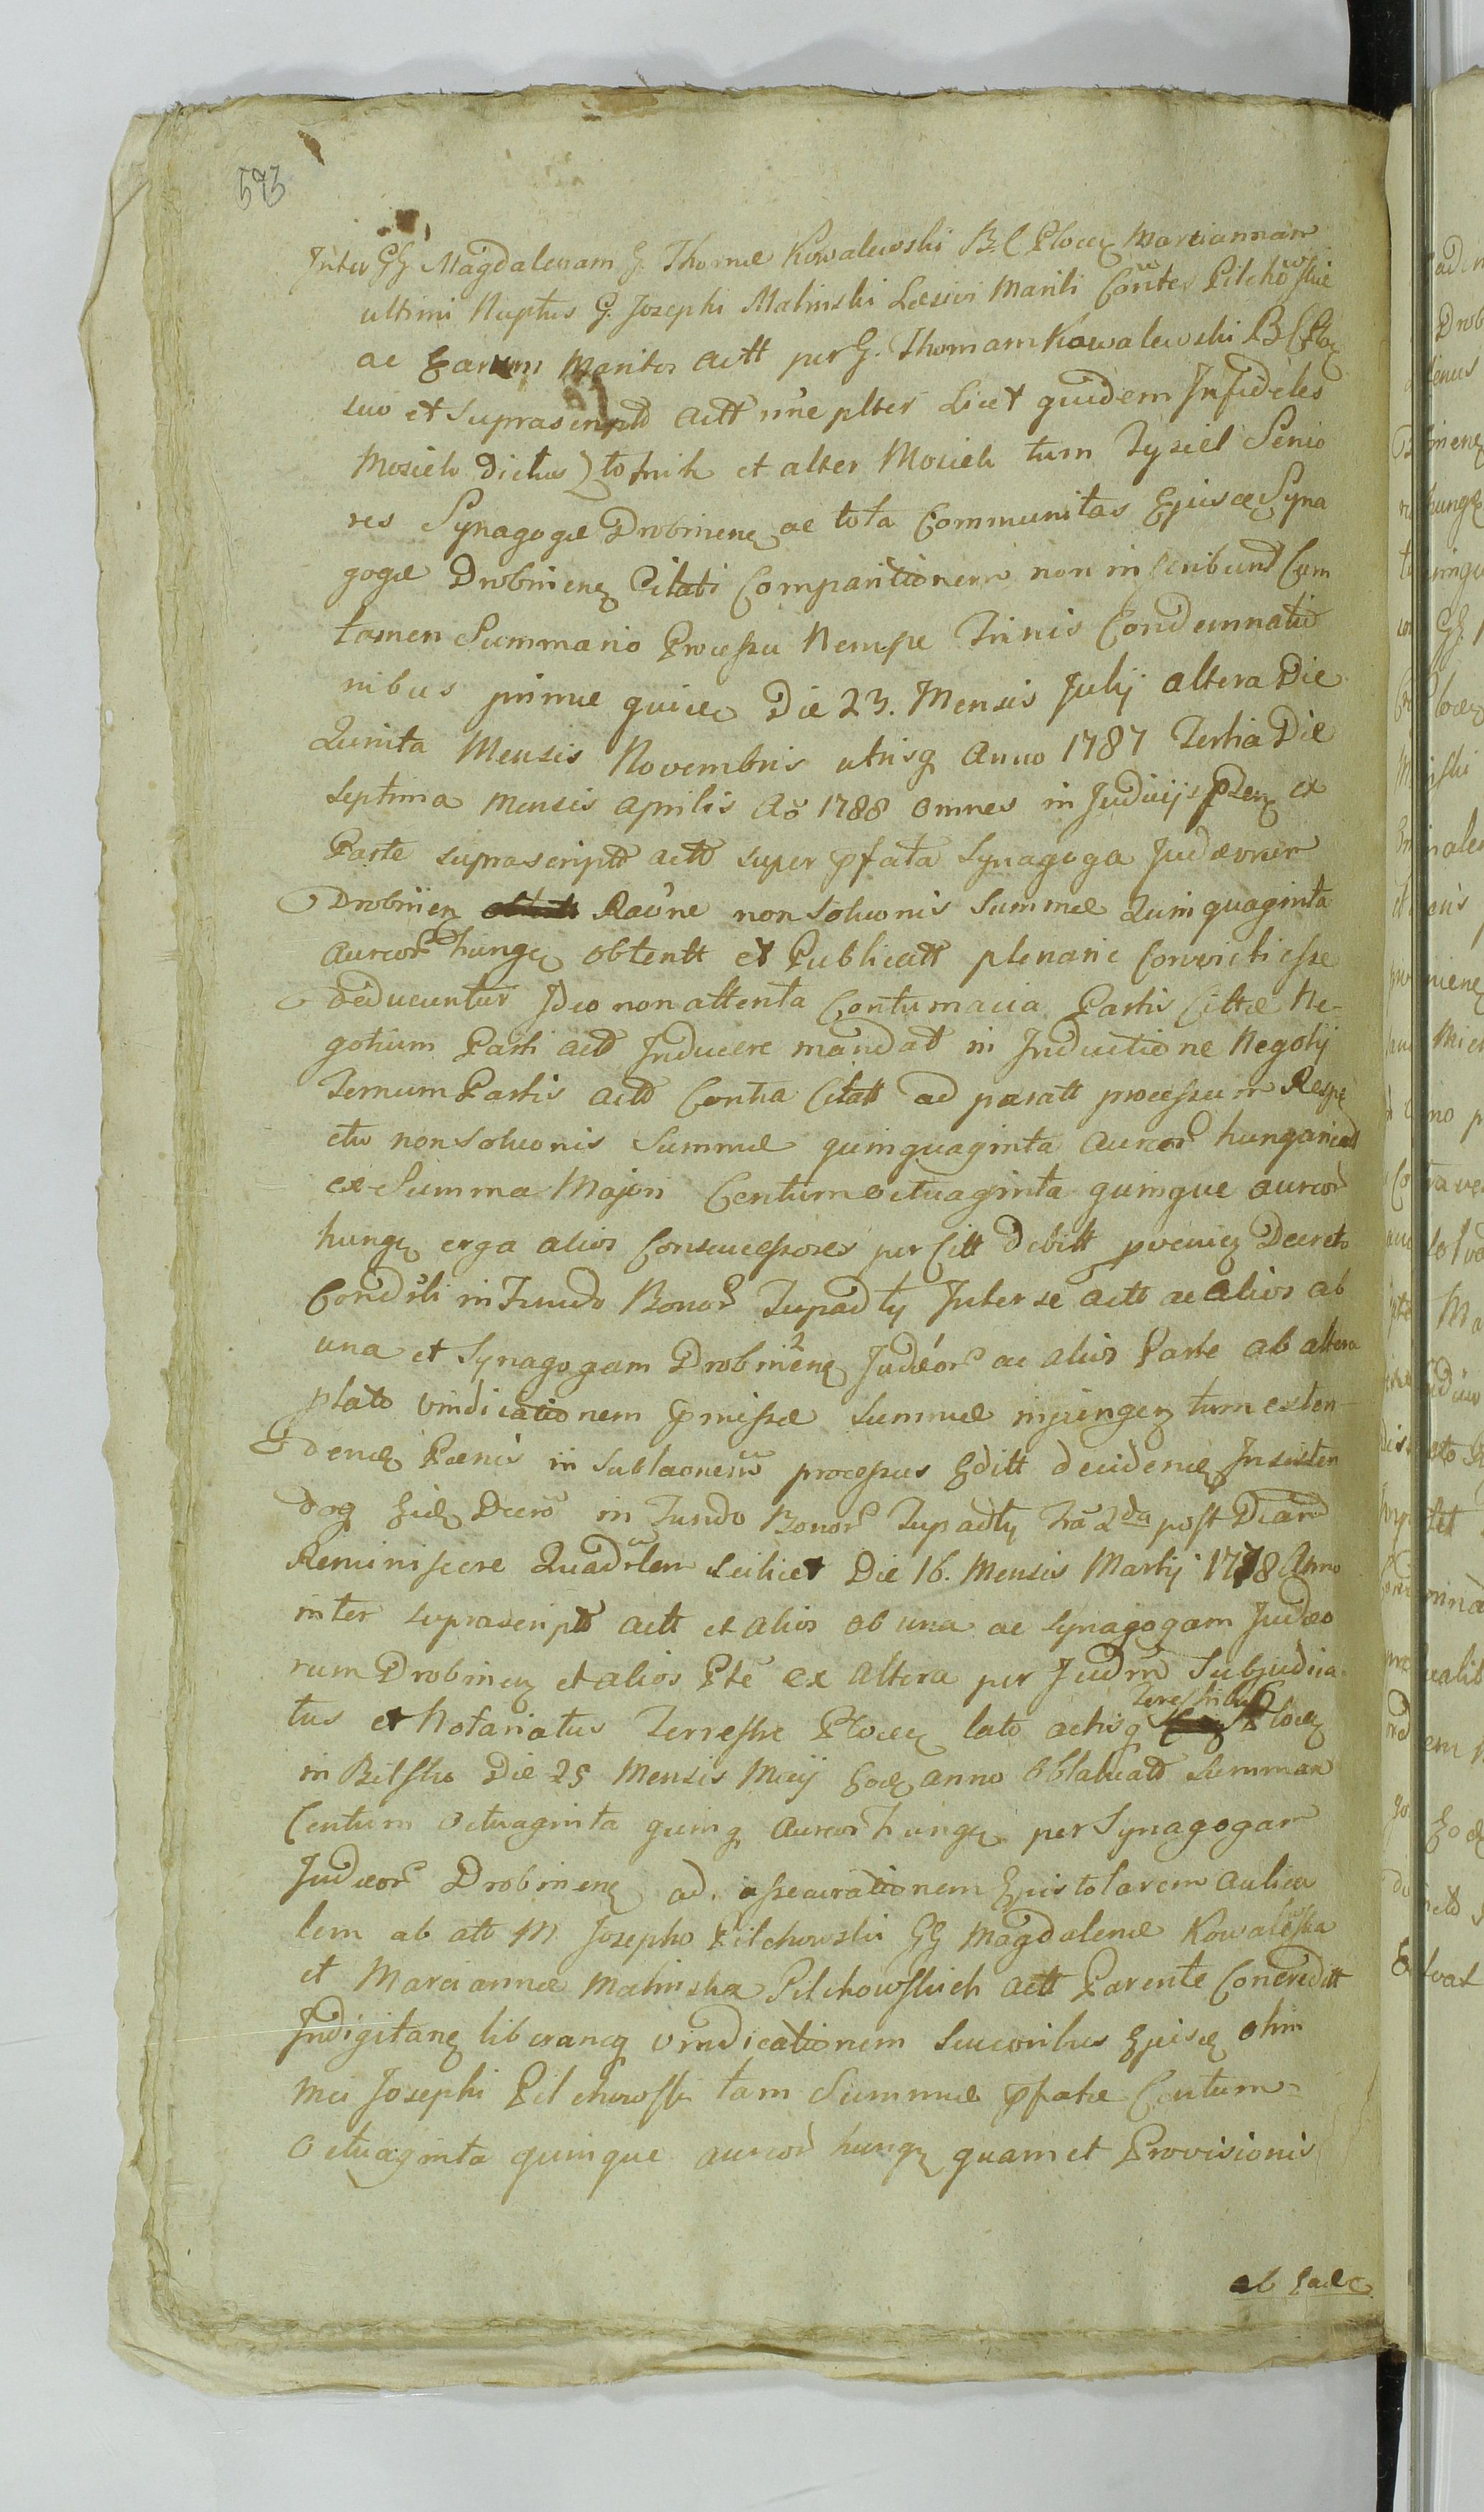 573
Inter GG Magdalenam G. Thomæ Kowalewski B. C. Plocen Mariannam
ultimi Nuptus G. Josephi Malinski Læsivi Mariti Contes Pilchowskie
ac Earum Maritos actt per G. Thomam Kowalewski B C Ploc
suo et suprascriptt actt nne plter Licet quidem Infideles
Mosiek Dictus Zlotnik et alter Mosiek tum Zysiel Senio
res Synagogæ Drobinenę ac tota Communitas Ejusdę Syna
gogæ Drobinenę Citati Comparitionem non inscribunt Cum
tamen Summario Processu Nempe Trinis Condemnatio
nibus prima quidę Die 23. Mensis Julij altera Die
Quinta Mensis Novembris utrisq Anno 1787 Tertia Die
Septima mensis aprilis Aõ 1788 omnes in Judicijs ex
Parte suprascriptt actt super pfata Synagoga Judæorum
Drobinen Raõne non Soluonis Summæ Quinquaginta
aureor hungę obtentt et Publicatt plenarie Convicti esse
deducuntur Ideo non attenta Contumacia Partis Cittæ Ne-
gotium Parti actt Inducere mandat in Inductione Negotij
Ternum Partis actt Contra Citatt ad paratt processum Respe
ctu non Soluonis Summæ quinquaginta aureor hungaricall
ex Summa Majori Centum octuaginta quinque aureor
hungę erga alios Consuccessores per Citt debitt Decreto
Condsli in Fundo Bonor Zupadly Inter se actt ac alios ab
una et Synagogam Drobinenę Judæor ac alios Parte ab altera
plato vindicationem pmissæ Summæ injungen tum exten-
denę Pænis in Sublaonem processus Editt decidenę Insisten
doq Eidę Decro in Fundo Bonor Zupadly Fra 2da post Dicam
Reminiscere Quadrlem scilicet Die 16. Mensis Martij 1778 Anno
inter suprascriptt actt et alios ab una ac Synagogam Judæo
rum Drobinen et alios Pte ex altera per Judm Subjudica
tus et Notariatus Terrestre Plocen lato actisq Terestribus Plocen
in Bilsko Die 25 Mensis Maij Eodę anno Oblaticatt Summam
Centum octuaginta quinq aureor hungę per Synagogam
Judæor Drobinenę ad assecurationem Epistolarem
lem ab att M. Josepho Pilchowski GG Magdalenæ Kowaleska
et Mariannæ Malinska Pilchowskich actt Parente Concreditt
Indigitanę liberanę vindicationem Succoribus Ejusdę olim
Mci Josephi Pilchowski tam Summæ pfatæ Centum
Octuaginta quinque aureor hungę quam et Provisionis
ab Eadę